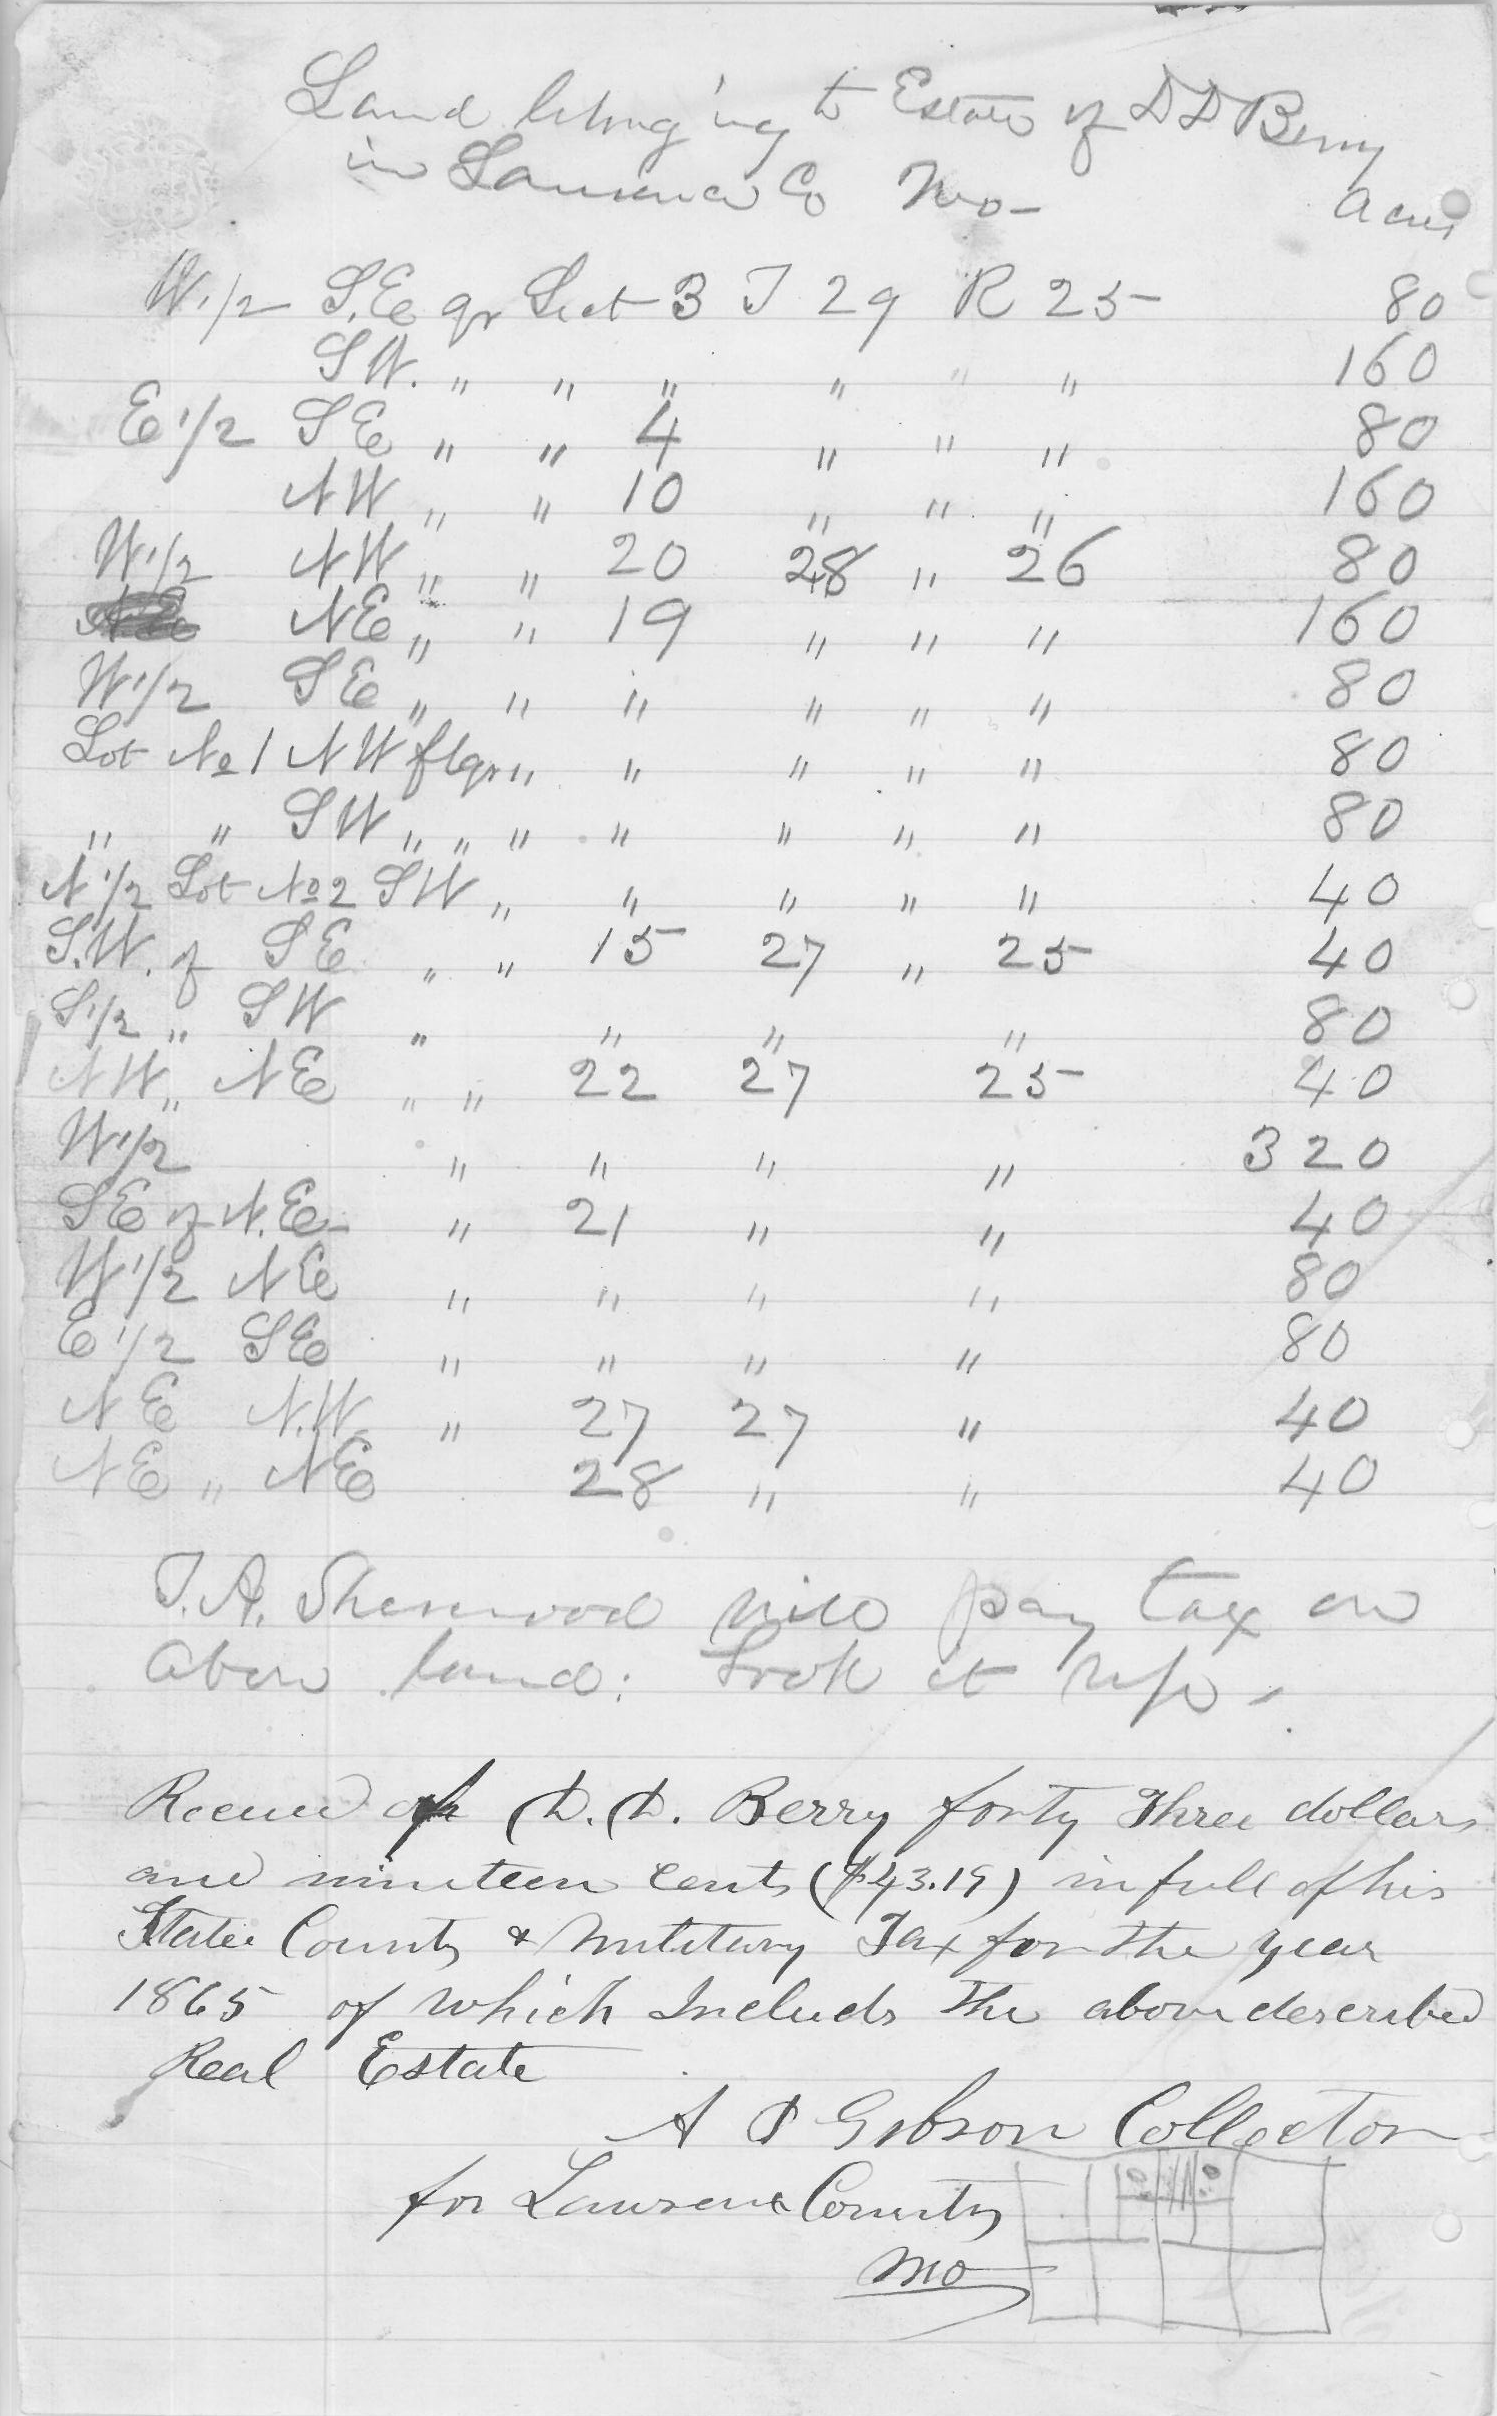 Land belonging to Estate of D D Berry
in Lawrence Co Mo-
Acres
W 1/2 S.E qr Sect 3 T 29 R 25 80
S W. " " " " " " 160
E 1/2 S E " " 4 " " " 80
N W " " 10 " " " 160
W 1/2 N W " " 20 28 " 26 80
N E " " 19 " " " 160
W 1/2 S E " " " " " " 80
Lot No 1 N W flqr " " " " " 80
" " S W " " " " " " " 80
N 1/2 Lot No 2 S W " " " " " 40
S.W. of S E " " 15 27 " 25 40
S 1/2 " S W " " " " 80
N W " N E " " 22 27 25 40
W 1/2 " " " " 320
S E of N.E- " 21 " " 40
W 1/2 N E " " " " 80
E 1/2 S E " " " " 80
N E N.W. " 27 27 " 40
N E " N E 28 " " 40
T. A. Sherwood will pay tax on
above land: Look it up.
Received of D. D. Berry forty Three dollars
and nineteen cents ($43.19) in full of his
State County & Military Tax for the year
1865 of which Includs the above described
Real Estate
A P Gibson Collector
for Lawrence County
Mo